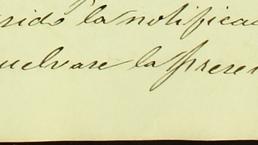 rido la notificac
uelvase la prese